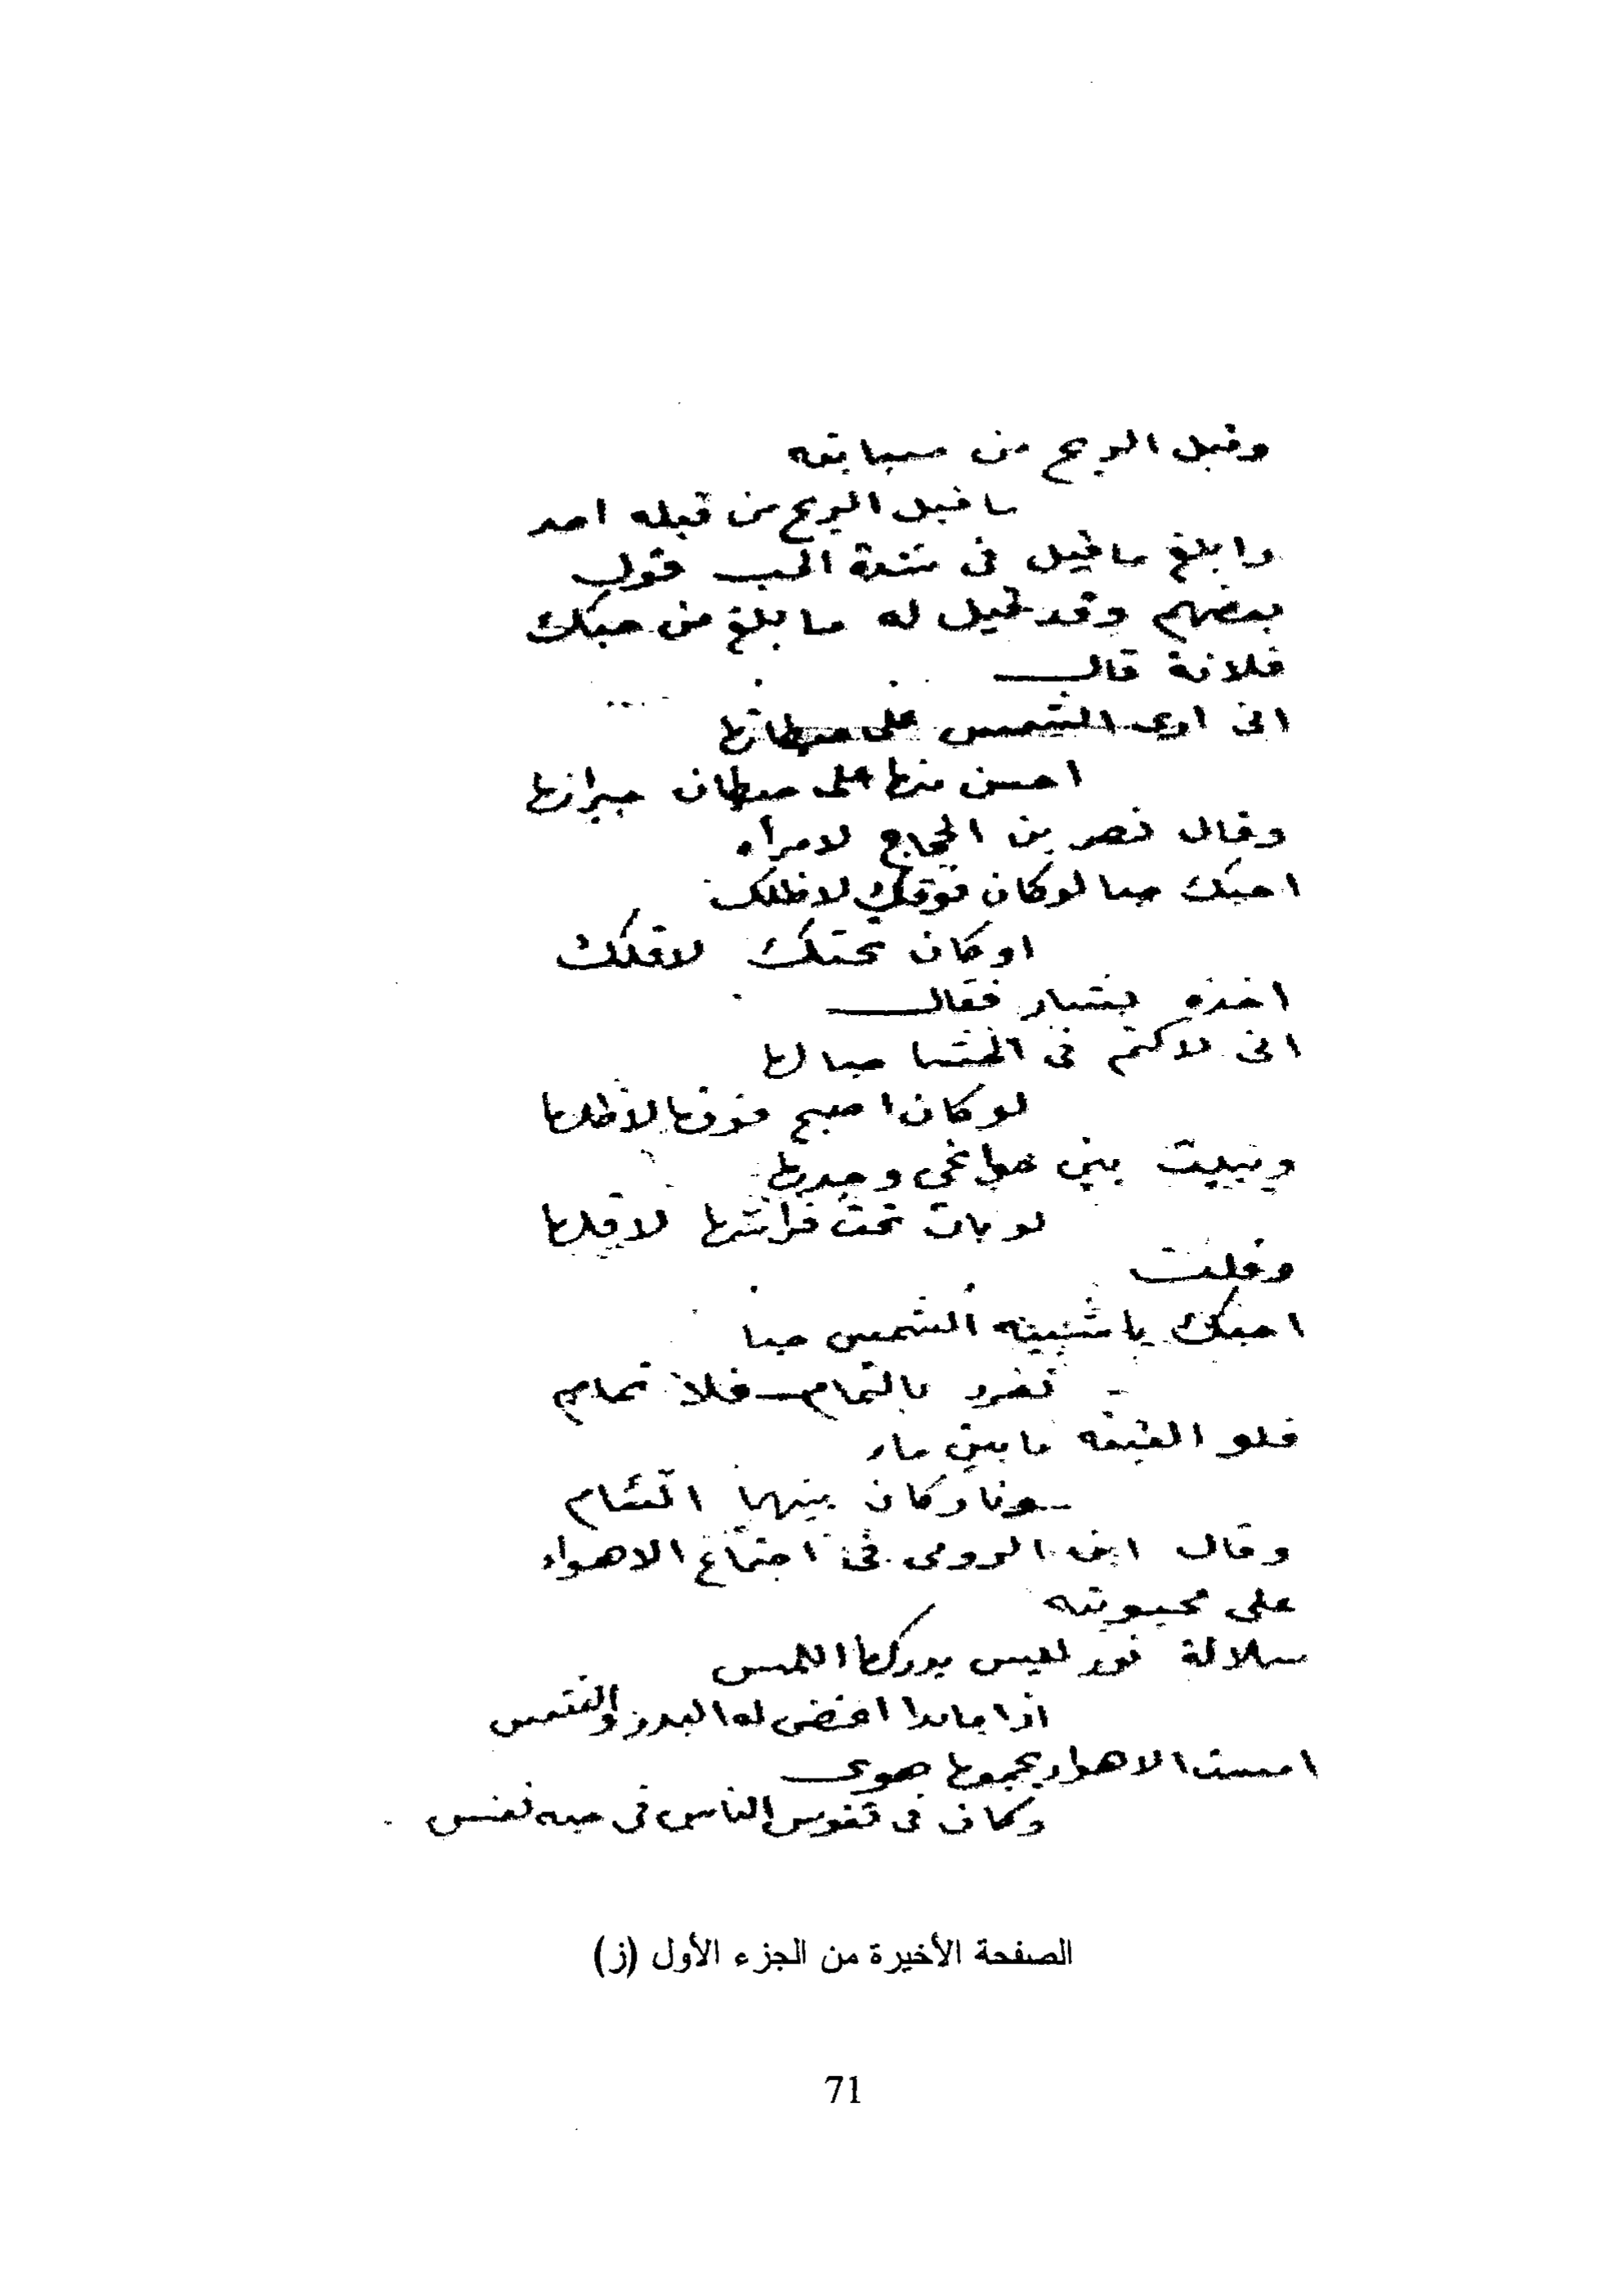 وقبل الريح من صبابته
ما قبل الريح من قبله احد
وابلغ ماقيل فى شدة الحب قول
بعضهم وقد قيل له ما بلغ من حبك
فلانة قال
انى ارى الشمس على حيطانها
احسن منها على حيطان جيرانها
وقال نصر بن الحجاج لامرأه
احبك حبا لوكان فوقك لاظلك
اوكان تحتك لاقلك
اخذه بشار فقال
انى لاكتم فى الحشا حبا لها
لوكان اصبح فوقها لاظلها
ويبيت بين جوانحى وجدبها
لوبات تحت فراشها لاقلها
وقلت
احبك ياشبيه الشمس حبا
تفرد بالتمام فلا تمام
فلو القيته مابين ماء
ونار كان بينهما التئام
وقال ابن الرومى فى اجتماع الاهواء
على محبوبته
سلالة نور ليس يدركها اللمس
اذا مابدا اغضى له البدر والشمس
امست الاهواء يجمعها هوى
وكان فى نفوس الناس فى حبه نفس
الصفحة الأخيرة من الجزء الأول (ز)
71